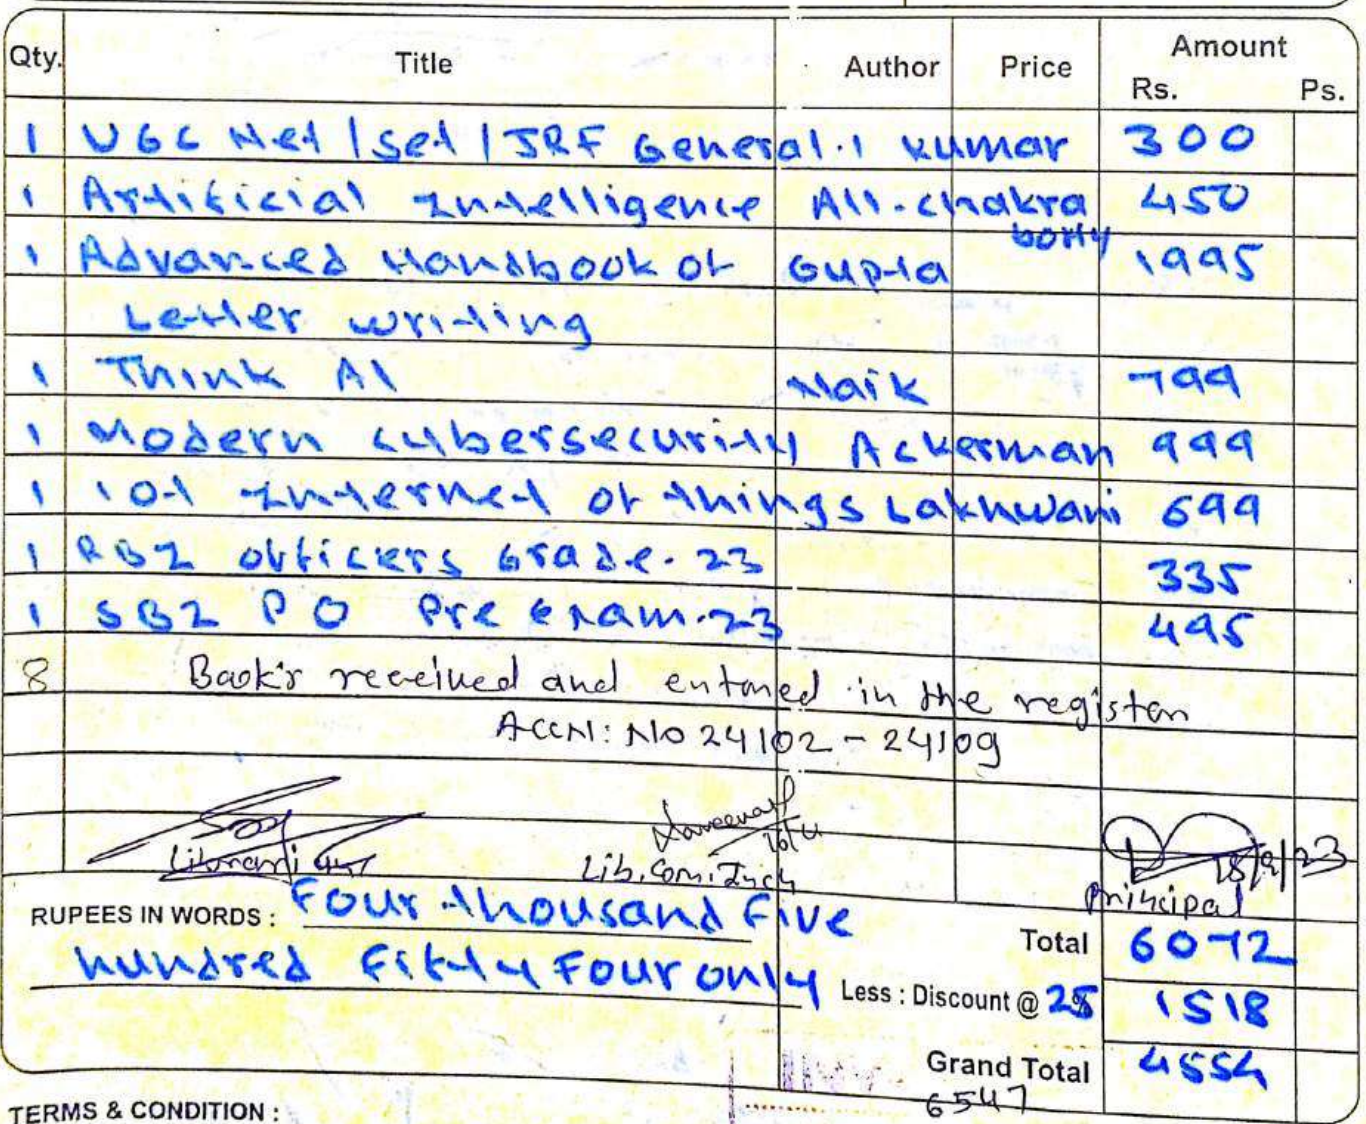 Qty. Title Author Price Amount
Rs. Ps.
1 UGC Net/Set/JRF General.1 Kumar 300
1 Artificial Intelligence All. Chakra 450
borty
1 Advanced Handbook of Gupta 1995
Letter writing
1 Think AI Naik 799
1 Modern Cybersecurity Ackerman 999
1 IOT Internet of things Lakhwani 699
1 RBI officers Grade.23 335
1 SBI PO Pre Exam.23 495
8 Book's received and entored in the register
ACCN: NO 24102 - 24109
18/9/23
Lib. Com. Inch
Principal
RUPEES IN WORDS : Four thousand Five
hundred Fifty Four only
Total 6072
Less : Discount @ 25% 1518
Grand Total 4554
6547
TERMS & CONDITION :